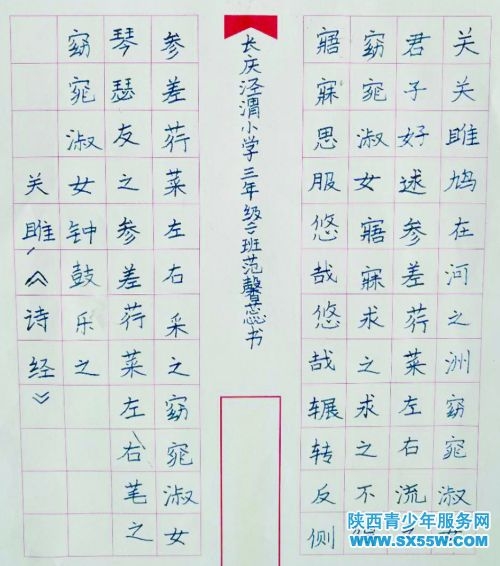 关关雎鸠在河之洲窈窕淑女
君子好逑参差荇菜左右流之
窈窕淑女寤寐求之求之不得
寤寐思服悠哉悠哉辗转反侧
长庆泾渭小学三年级班范馨蕊书
参差荇菜左右采之窈窕淑女
琴瑟友之参差荇菜左右芼之
窈窕淑女钟鼓乐之
关雎，《诗经》
陕西青少年服务网
www.sx55w.com